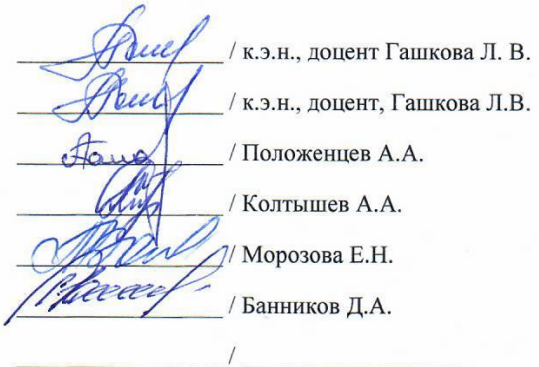 / к.э.н., доцент Гашкова Л. В.
/ к.э.н., доцент, Гашкова Л.В.
/ Положенцев А.А.
/ Колтышев А.А.
/ Морозова Е.Н.
/ Банников Д.А.
/